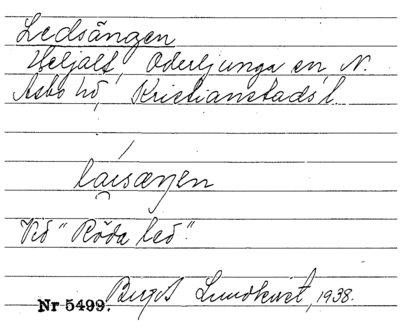 Ledsängen
Heljalt, Oderljunga sn N.
Åsbo hd, Kristianstads l.
Vid "Röda led".
Nr 5499. Birgit Lundkvist, 1938.